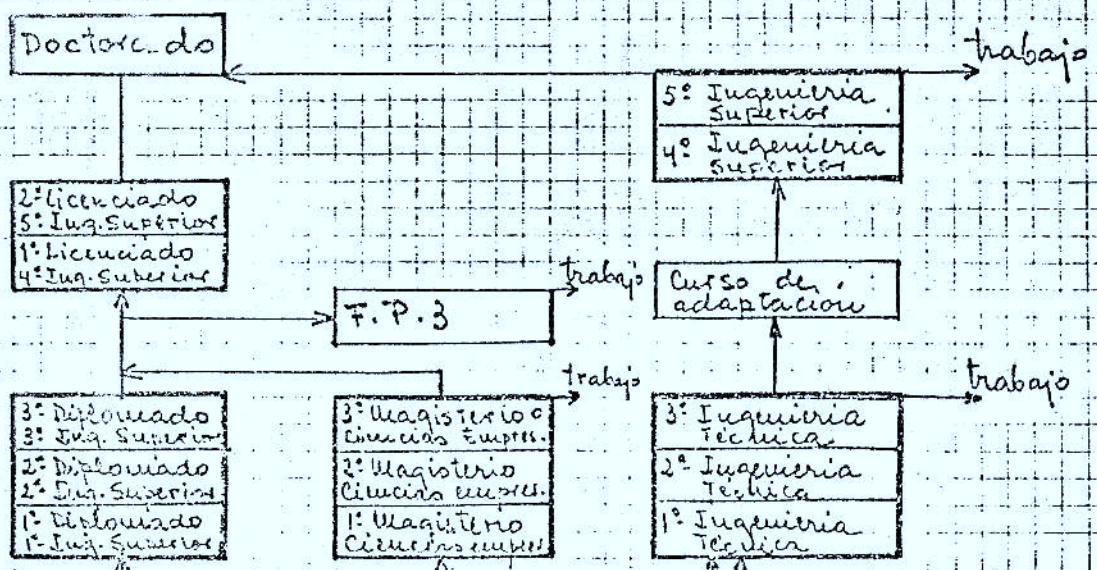 Doctorado
trabajo
5º Ingenieria
Superior
4º Ingenieria
Superior
2º Licenciado
5º Ing. Superior
1º Licenciado
4º Ing. Superior
trabajo
F.P.3
Curso de
adaptación
trabajo
trabajo
3º Diplomado
3º Ing. Superior
2º Diplomado
2º Ing. Superior
1º Diplomado
1º Ing. Superior
3º Magisterio o
Ciencias Empres.
2º Magisterio
Ciencias empres.
1º Magisterio
Ciencias empres.
3º Ingenieria
Técnica
2º Ingenieria
Técnica
1º Ingenieria
Técnica